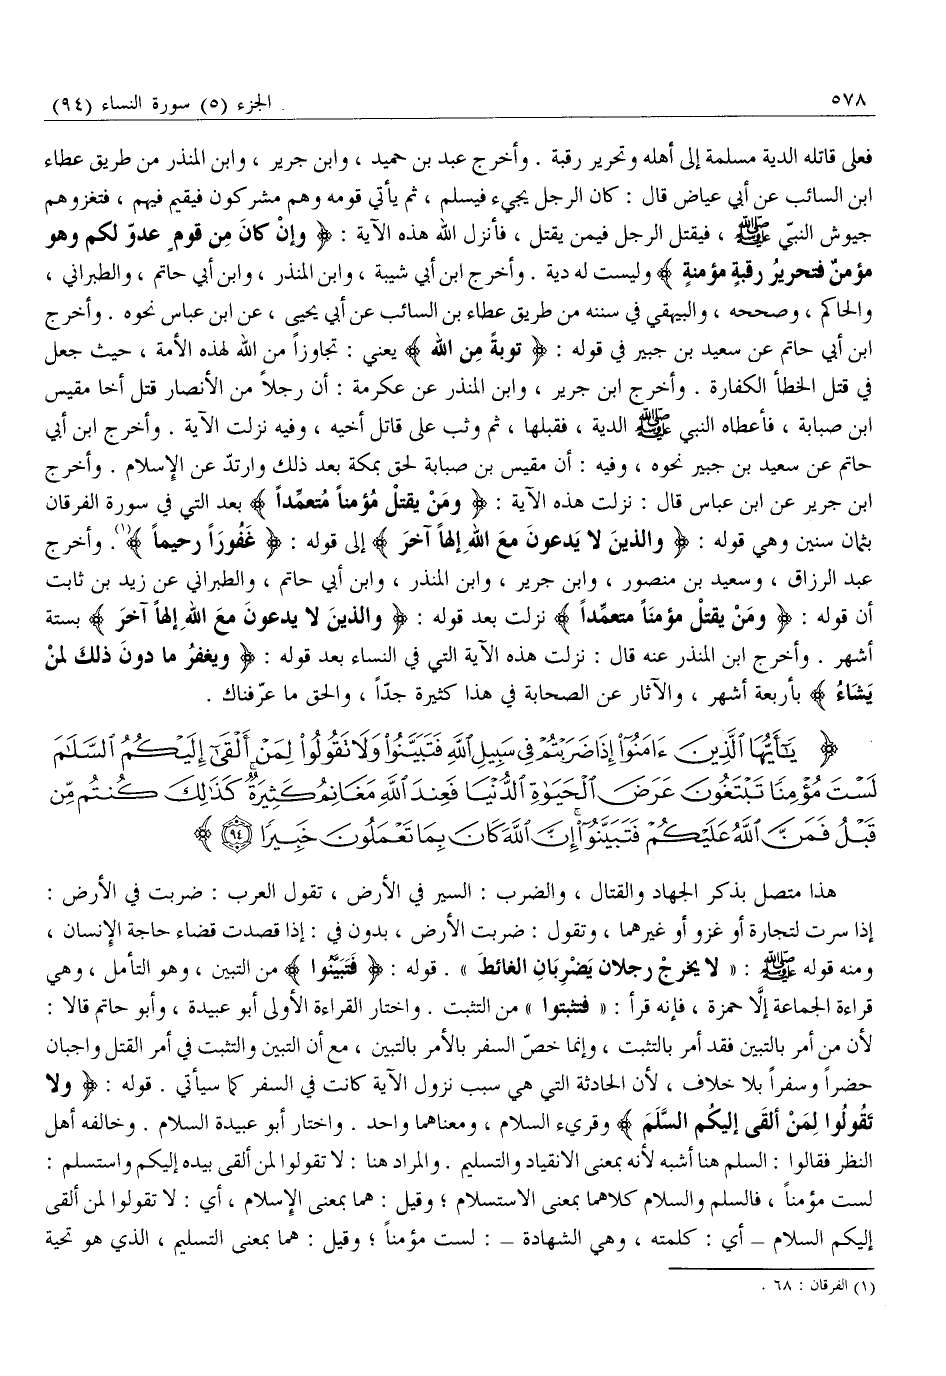 ٥٧٨
الجزء (٥) سورة النساء (٩٤)
فعلى قاتله الدية مسلمة إلى أهله وتحرير رقبة . وأخرج عبد بن حميد ، وابن جرير ، وابن المنذر من طريق عطاء
ابن السائب عن أبي عياض قال : كان الرجل يجيء فيسلم ، ثم يأتي قومه وهم مشركون فيقيم فيهم ، فتغزوهم
جيوش النبيّ ﷺ ، فيقتل الرجل فيمن يقتل ، فأنزل الله هذه الآية : ﴿ وإنْ كانَ مِن قومٍ عدوّ لكم وهو
مؤمنٌ فتحريرُ رقبةٍ مؤمنةٍ ﴾ وليست له دية . وأخرج ابن أبي شيبة ، وابن المنذر ، وابن أبي حاتم ، والطبراني ،
والحاكم ، وصححه ، والبيهقي في سننه من طريق عطاء بن السائب عن أبي يحيى ، عن ابن عباس نحوه . وأخرج
ابن أبي حاتم عن سعيد بن جبير في قوله : ﴿ توبةً مِن الله ﴾ يعني : تجاوزاً من الله لهذه الأمة ، حيث جعل
في قتل الخطأ الكفارة . وأخرج ابن جرير ، وابن المنذر عن عكرمة : أن رجلاً من الأنصار قتل أخا مقيس
ابن صبابة ، فأعطاه النبي ﷺ الدية ، فقبلها ، ثم وثب على قاتل أخيه ، وفيه نزلت الآية . وأخرج ابن أبي
حاتم عن سعيد بن جبير نحوه ، وفيه : أن مقيس بن صبابة لحق بمكة بعد ذلك وارتدّ عن الإسلام . وأخرج
ابن جرير عن ابن عباس قال : نزلت هذه الآية : ﴿ ومَنْ يقتلْ مُؤمناً مُتعمِّداً ﴾ بعد التي في سورة الفرقان
بثمان سنين وهي قوله : ﴿ والذينَ لا يَدعونَ معَ اللهِ إلهاً آخرَ ﴾ إلى قوله : ﴿ غَفُورَاً رحيماً ﴾(١). وأخرج
عبد الرزاق ، وسعيد بن منصور ، وابن جرير ، وابن المنذر ، وابن أبي حاتم ، والطبراني عن زيد بن ثابت
أن قوله : ﴿ ومَنْ يقتلْ مؤمنَاً متعمِّداً ﴾ نزلت بعد قوله : ﴿ والذينَ لا يدعونَ معَ اللهِ إلهاً آخرَ ﴾ بستة
أشهر . وأخرج ابن المنذر عنه قال : نزلت هذه الآية التي في النساء بعد قوله : ﴿ ويغفرُ ما دونَ ذلكَ لمنْ
يَشَاءُ ﴾ بأربعة أشهر ، والآثار عن الصحابة في هذا كثيرة جدّاً ، والحق ما عرّفناك .
﴿ يَٰٓأَيُّهَا ٱلَّذِينَ ءَامَنُوٓا۟ إِذَا ضَرَبْتُمْ فِى سَبِيلِ ٱللَّهِ فَتَبَيَّنُوا۟ وَلَا تَقُولُوا۟ لِمَنْ أَلْقَىٰٓ إِلَيْكُمُ ٱلسَّلَٰمَ
لَسْتَ مُؤْمِنًا تَبْتَغُونَ عَرَضَ ٱلْحَيَوٰةِ ٱلدُّنْيَا فَعِندَ ٱللَّهِ مَغَانِمُ كَثِيرَةٌ ۚ كَذَٰلِكَ كُنتُم مِّن
قَبْلُ فَمَنَّ ٱللَّهُ عَلَيْكُمْ فَتَبَيَّنُوٓا۟ ۚ إِنَّ ٱللَّهَ كَانَ بِمَا تَعْمَلُونَ خَبِيرًا ٩٤ ﴾
هذا متصل بذكر الجهاد والقتال ، والضرب : السير في الأرض ، تقول العرب : ضربت في الأرض :
إذا سرت لتجارة أو غزو أو غيرهما ، وتقول : ضربت الأرض ، بدون في : إذا قصدت قضاء حاجة الإنسان ،
ومنه قوله ﷺ : « لا يخرجْ رجلان يَضْرِبَانِ الغائطَ » . قوله : ﴿ فَتَبَيَّنُوا ﴾ من التبين ، وهو التأمل ، وهي
قراءة الجماعة إلَّا حمزة ، فإنه قرأ : « فتثبتوا » من التثبت . واختار القراءة الأولى أبو عبيدة ، وأبو حاتم قالا :
لأن من أمر بالتبين فقد أمر بالتثبت ، وإنما خصّ السفر بالأمر بالتبين ، مع أن التبين والتثبت في أمر القتل واجبان
حضراً وسفراً بلا خلاف ، لأن الحادثة التي هي سبب نزول الآية كانت في السفر كما سيأتي . قوله : ﴿ ولا
تَقُولُوا لِمَنْ أَلقَى إليكُم السَّلَمَ ﴾ وقريء السلام ، ومعناهما واحد . واختار أبو عبيدة السلام . وخالفه أهل
النظر فقالوا : السلم هنا أشبه لأنه بمعنى الانقياد والتسليم . والمراد هنا : لا تقولوا لمن ألقى بيده إليكم واستسلم :
لست مؤمناً ، فالسلم والسلام كلاهما بمعنى الاستسلام ؛ وقيل : هما بمعنى الإسلام ، أي : لا تقولوا لمن ألقى
إليكم السلام ــ أي : كلمته ، وهي الشهادة ــ : لست مؤمناً ؛ وقيل : هما بمعنى التسليم ، الذي هو تحية
(١) الفرقان : ٦٨ .